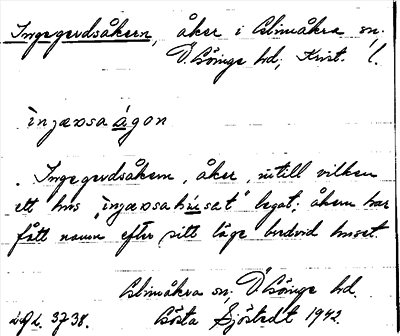 Ingegerdsåkern, åker i Glimåkra sn.
Ö. Göinge hd, Krist. l.
injæɷsa ågon
Ingegerdsåkern, åker, intill vilken
ett hus "injæɷsahúsat" legat; åkern har
fått namn efter sitt läge bredvid huset.
Glimåkra sn. Ö. Göinge hd.
Gösta Sjöstedt 1942.
3738.